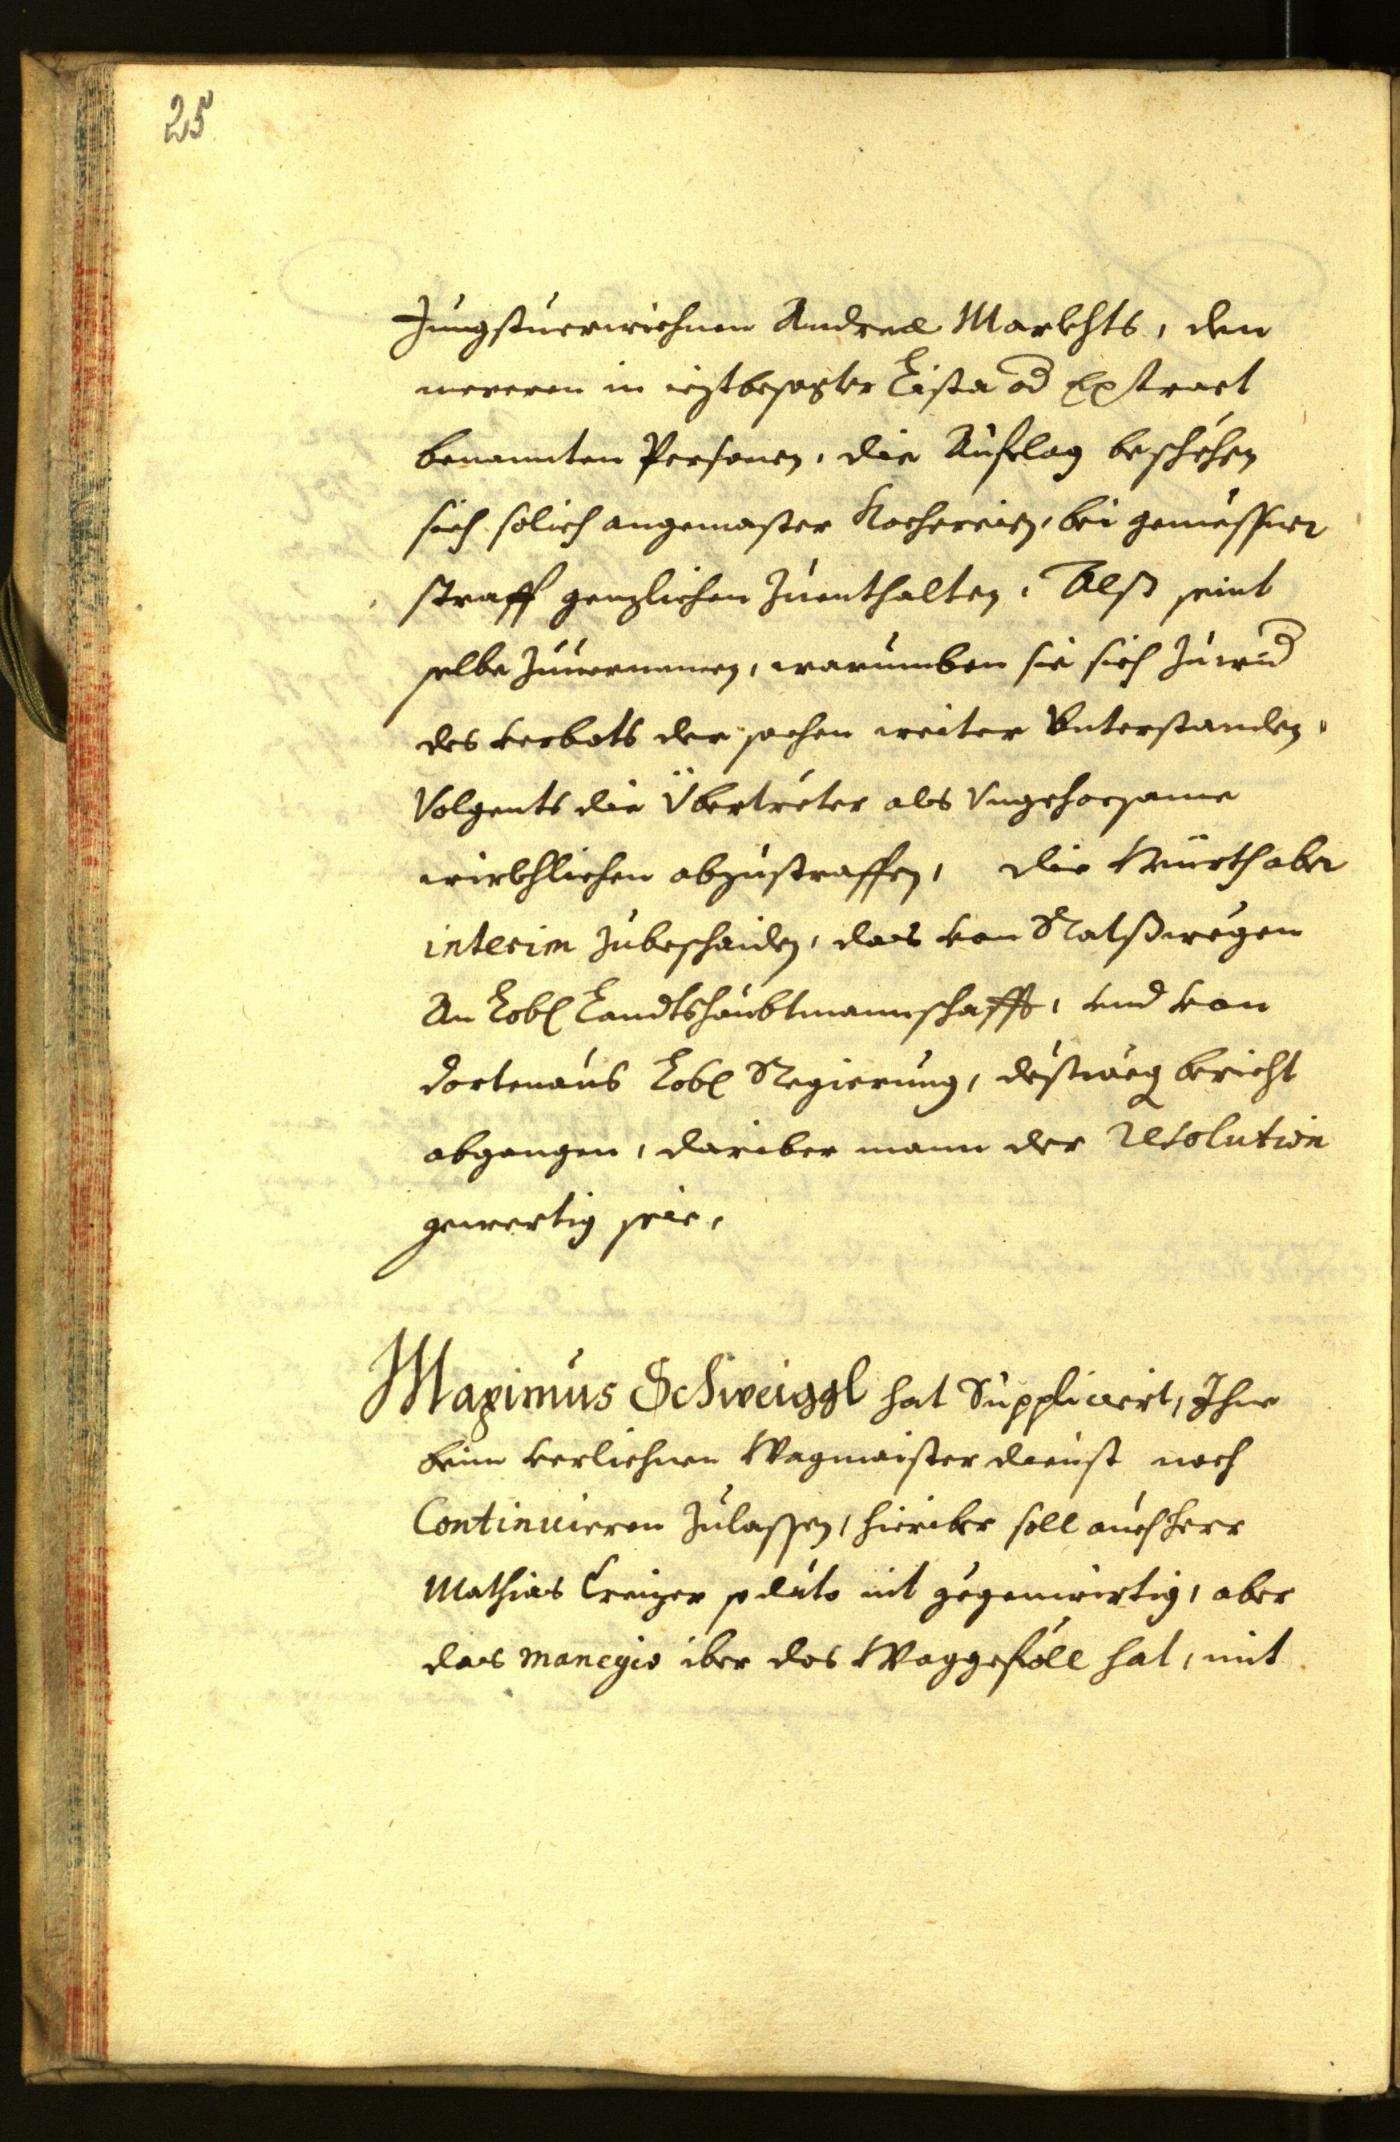 25
Jungstuerwichnen Andreæ Markhts, den
mereren in iezt besagter Lista od Extract
benannten Personen, die Auflag beschehen
sich solich angemaster Kochereien, bei gemessner
straff genzlichen Zuenthalten, Alß seint
selbe Zuuernemen, warumben sie sich Zuwid
des verbots der sachen weiter Vnterstanden,
Volgents die Übertreter als Vngehorsame
wirkhlichen abzustraffen, die Würth aber
interim Zubeschaiden, das von Ratßwegen
An Lobl Landtshaubtmannschafft, vnd von
dortenaus Lobl Regierung, destweg bericht
abgangen, dariber mann der Resolution
gewertig seie,
Maximus Schweiggl hat Suppliciert, Ihne
beim verlichnen Wagmaister dienst noch
Continuieren Zulassen, hieriber soll auch herr
Mathias Creizer p dato nit gegenwirtig, aber
das manegio iber das Waggeföll hat, mit